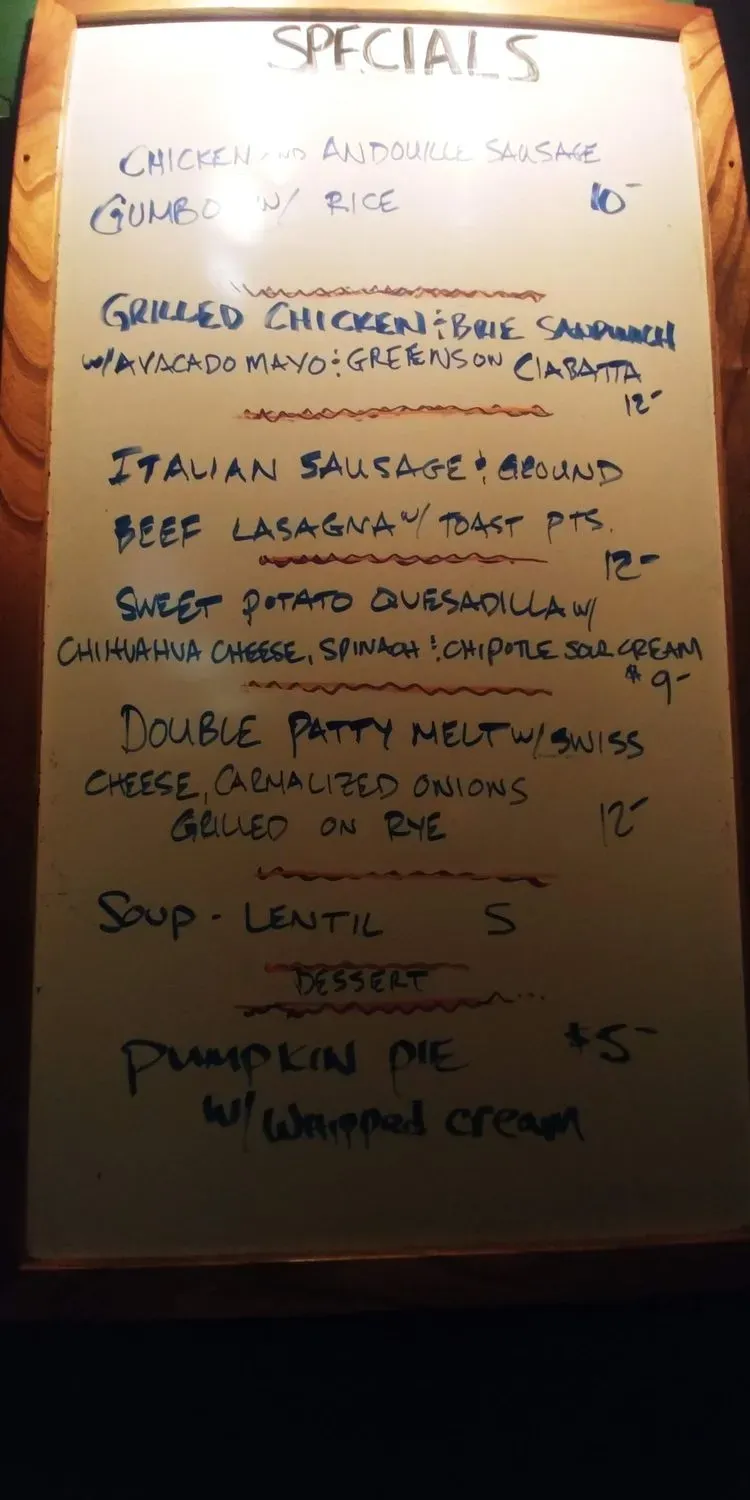 SPECIALS
CHICKEN AND ANDOUILLE SAUSAGE
GUMBO W/ RICE 10-
GRILLED CHICKEN & BRIE SANDWICH
W/ AVACADO MAYO & GREENS ON CIABATTA
12-
ITALIAN SAUSAGE & GROUND
BEEF LASAGNA W/ TOAST PTS.
12-
SWEET POTATO QUESADILLA W/
CHIHUAHUA CHEESE, SPINACH & CHIPOTLE SOUR CREAM
$9-
DOUBLE PATTY MELT W/ SWISS
CHEESE, CARMALIZED ONIONS
GRILLED ON RYE 12-
SOUP - LENTIL 5
DESSERT
PUMPKIN PIE $5-
W/ Whipped cream